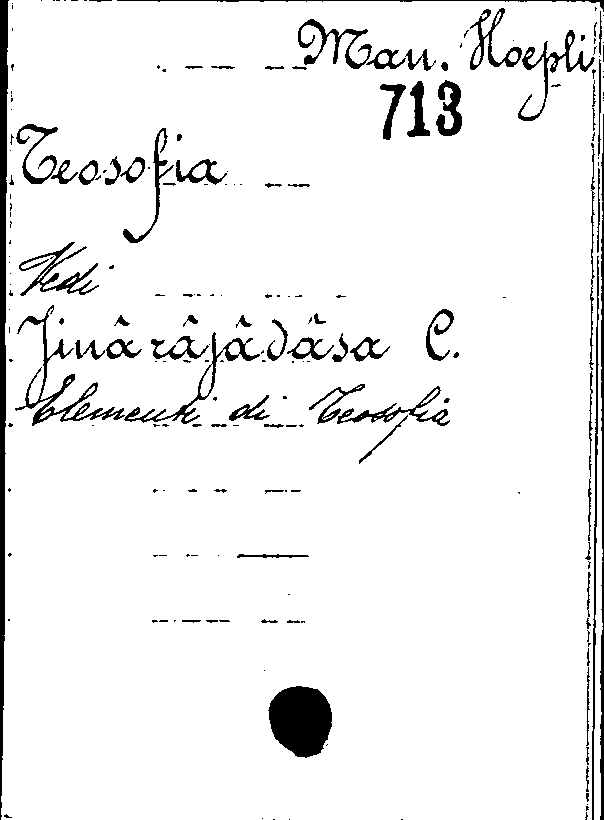 Man. Hoepli
713
Teosofia
Vedi
Jinârâjâdâsa C.
Elementi di Teosofia